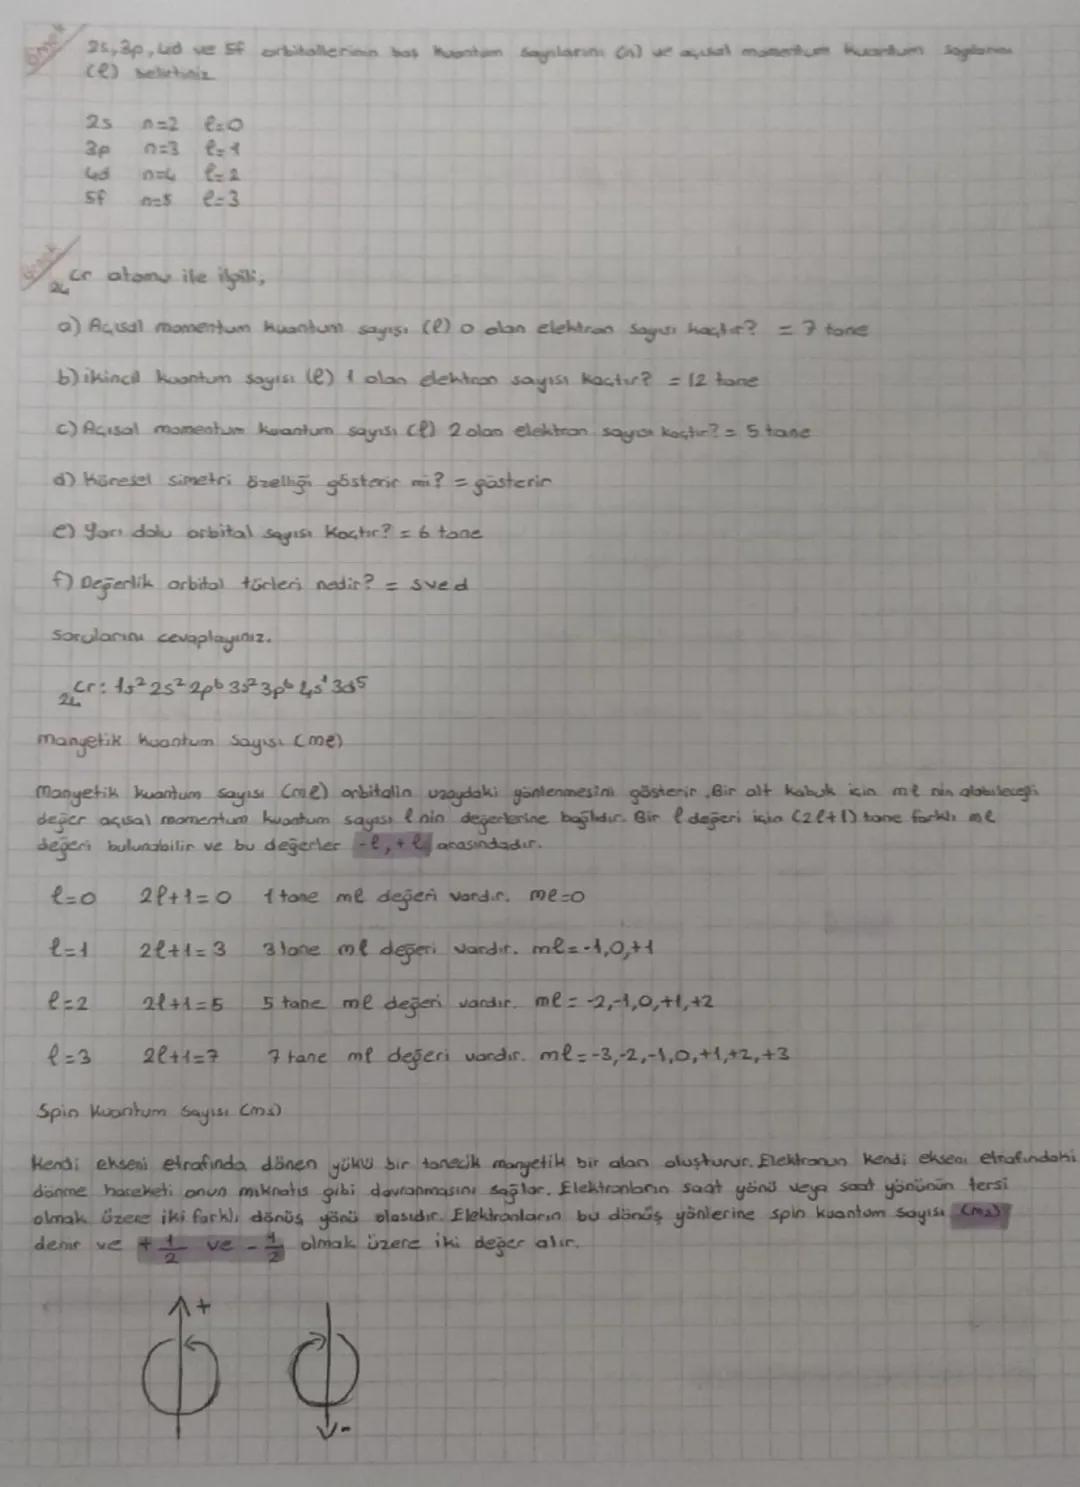 Örnek
2s, 3p, 4d ve 5f orbitallerinin baş kuantum sayılarını (n) ve açısal momentum kuantum sayılarını
(l) belirtiniz
2s n=2 l=0
3p n=3 l=1
4d n=4 l=2
5f n=5 l=3
Örnek
24Cr atomu ile ilgili,
a) Açısal momentum kuantum sayısı (l) 0 olan elektron sayısı kaçtır? = 7 tane
b) ikincil kuantum sayısı (l) 1 olan elektron sayısı kaçtır? = 12 tane
c) Açısal momentum kuantum sayısı (l) 2 olan elektron sayısı kaçtır? = 5 tane
d) Küresel simetri özelliği gösterir mi? = gösterir
e) Yarı dolu orbital sayısı kaçtır? = 6 tane
f) Değerlik orbital türleri nedir? = s ve d
sorularını cevaplayınız.
24Cr: 1s² 2s² 2p⁶ 3s² 3p⁶ 4s¹ 3d⁵
manyetik kuantum sayısı (ml)
Manyetik kuantum sayısı (ml) orbitalin uzaydaki yönlenmesini gösterir. Bir alt kabuk için ml nin alabileceği
değer açısal momentum kuantum sayısı l nin değerlerine bağlıdır. Bir l değeri için (2l+1) tane farklı ml
değeri bulunabilir ve bu değerler -l, +l arasındadır.
l=0 2l+1=0 1 tane ml değeri vardır. ml=0
l=1 2l+1=3 3 tane ml değeri vardır. ml=-1,0,+1
l=2 2l+1=5 5 tane ml değeri vardır. ml=-2,-1,0,+1,+2
l=3 2l+1=7 7 tane ml değeri vardır. ml=-3,-2,-1,0,+1,+2,+3
Spin Kuantum Sayısı (ms)
Kendi ekseni etrafında dönen yüklü bir tanecik manyetik bir alan oluşturur. Elektronun kendi ekseni etrafındaki
dönme hareketi onun mıknatıs gibi davranmasını sağlar. Elektronların saat yönü veya saat yönünün tersi
olmak üzere iki farklı dönüş yönü olasıdır. Elektronların bu dönüş yönlerine spin kuantum sayısı (ms)
denir ve +1/2 ve -1/2 olmak üzere iki değer alır.
+
-